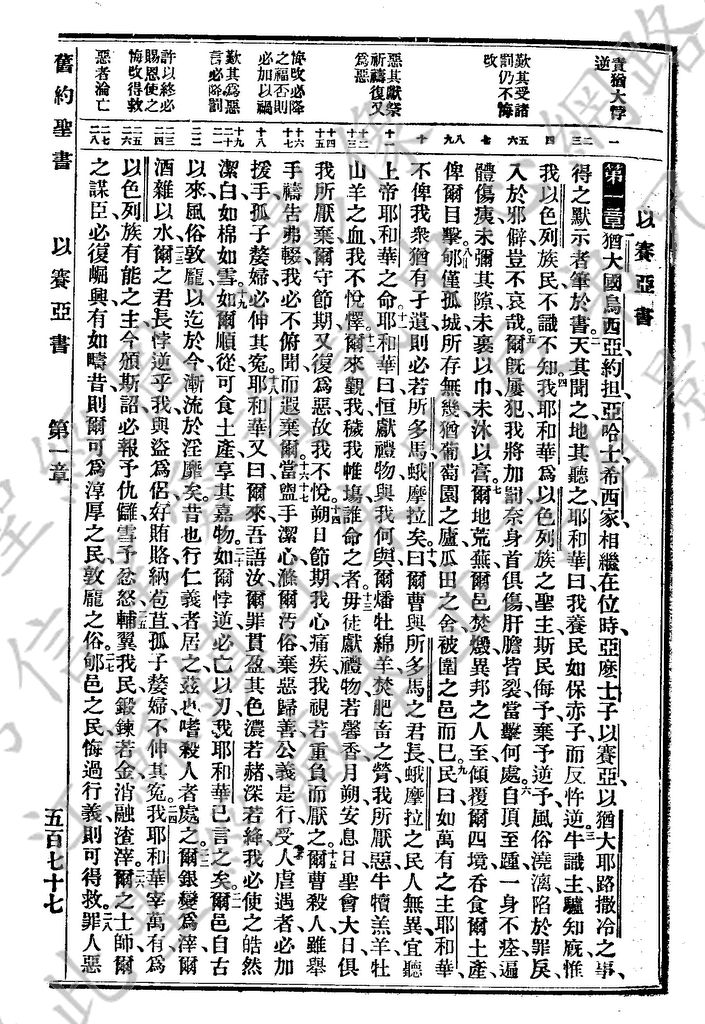 以賽亞書
責猶大悖逆
歎其受諸罰仍不悔改
惡其獻祭祈禱復又爲惡
悔改必降之福否則必加以禍
歎其爲惡言必降罰
許以終必賜恩使之悔改得救
惡者淪亡
第一章猶大國烏西亞約担亞哈士希西家相繼在位時亞麽士子以賽亞以猶大耶路撒冷之事
得之默示者筆於書天其聞之地其聽之耶和華曰我養民如保赤子而反忤逆牛識主驢知廄惟
我以色列族民不識不知我耶和華爲以色列族之聖主斯民侮予棄予逆予風俗澆漓陷於罪戾
入於邪僻豈不哀哉爾旣屢犯我將加罰奈身首俱傷肝膽皆裂當擊何處自頂至踵一身不痊遍
體傷痍未彌其隙未裹以巾未沐以膏爾地荒蕪爾邑焚燬異邦之人至傾覆爾四境吞食爾土產
俾爾目擊郇僅孤城所存無幾猶葡萄園之廬瓜田之舍被圍之邑而已民曰如萬有之主耶和華
不俾我衆猶有孑遺則必若所多馬蛾摩拉矣曰爾曹與所多馬之君長蛾摩拉之民人無異宜聽
上帝耶和華之命耶和華曰恒獻禮物與我何與爾燔牡綿羊焚肥畜之膋我所厭惡牛犢羔羊牡
山羊之血我不悅懌爾來觀我穢我帷塲誰命之者毋徒獻禮物若馨香月朔安息日聖會大日俱
我所厭棄爾守節期又復爲惡故我不悅朔日節期我心痛疾我視若重負而厭之爾曹殺人雖舉
手禱告弗輟我必不俯聞而遐棄爾當盥手潔心滌爾汚俗棄惡歸善公義是行受人虐遇者必加
援手孤子嫠婦必伸其冤耶和華又曰爾來吾語汝爾罪貫盈其色濃若赭深若絳我必使之皓然
潔白如棉如雪如爾順從可食土產享其嘉物如爾悖逆必亡以刃我耶和華已言之矣爾邑自古
以來風俗敦龐以迄於今漸流於淫靡矣昔也行仁義者居之茲也嗜殺人者處之爾銀變爲滓爾
酒雜以水爾之君長悖逆乎我與盜爲侶好賄賂納苞苴孤子嫠婦不伸其冤我耶和華宰萬有爲
以色列族有能之主今頒斯詔必報予仇讎雪予忿怒輔翼我民鍛鍊若金消融渣滓爾之士師爾
之謀臣必復崛興有如疇昔則爾可爲淳厚之民敦龐之俗郇邑之民悔過行義則可得救罪人惡
舊約聖書
以賽亞書
第一章
五百七十七